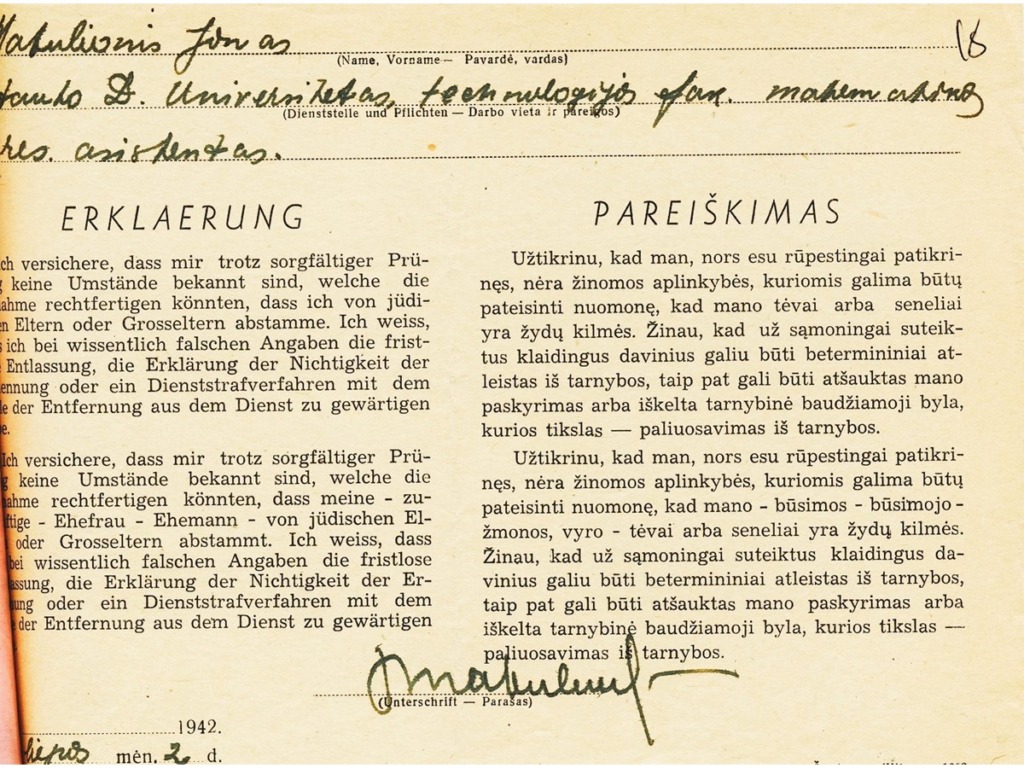 Matulionis Jonas
18
(Name, Vorname — Pavardė, vardas)
D. Universitetas, technologijos fak.
(Dienststelle und Pflichten — Darbo vieta ir pareigos)
res. asistentas.
ERKLAERUNG
ch versichere, dass mir trotz sorgfältiger Prü-
g keine Umstände bekannt sind, welche die
ahme rechtfertigen könnten, dass ich von jüdi-
n Eltern oder Grosseltern abstamme. Ich weiss,
s ich bei wissentlich falschen Angaben die frist-
e Entlassung, die Erklärung der Nichtigkeit der
ennung oder ein Dienststrafverfahren mit dem
le der Entfernung aus dem Dienst zu gewärtigen
e.
Ich versichere, dass mir trotz sorgfältiger Prü-
g keine Umstände bekannt sind, welche die
ahme rechtfertigen könnten, dass meine - zu-
ftige - Ehefrau - Ehemann - von jüdischen El-
oder Grosseltern abstammt. Ich weiss, dass
bei wissentlich falschen Angaben die fristlose
assung, die Erklärung der Nichtigkeit der Er-
ung oder ein Dienststrafverfahren mit dem
der Entfernung aus dem Dienst zu gewärtigen
PAREIŠKIMAS
Užtikrinu, kad man, nors esu rūpestingai patikri-
nęs, nėra žinomos aplinkybės, kuriomis galima būtų
pateisinti nuomonę, kad mano tėvai arba seneliai
yra žydų kilmės. Žinau, kad už sąmoningai suteik-
tus klaidingus davinius galiu būti betermininiai at-
leistas iš tarnybos, taip pat gali būti atšauktas mano
paskyrimas arba iškelta tarnybinė baudžiamoji byla,
kurios tikslas — paliuosavimas iš tarnybos.
Užtikrinu, kad man, nors esu rūpestingai patikri-
nęs, nėra žinomos aplinkybės, kuriomis galima būtų
pateisinti nuomonę, kad mano - būsimos - būsimojo -
žmonos, vyro - tėvai arba seneliai yra žydų kilmės.
Žinau, kad už sąmoningai suteiktus klaidingus da-
vinius galiu būti betermininiai atleistas iš tarnybos,
taip pat gali būti atšauktas mano paskyrimas arba
iškelta tarnybinė baudžiamoji byla, kurios tikslas —
paliuosavimas iš tarnybos.
(Unterschrift — Parašas)
1942.
liepos mėn. 2 d.